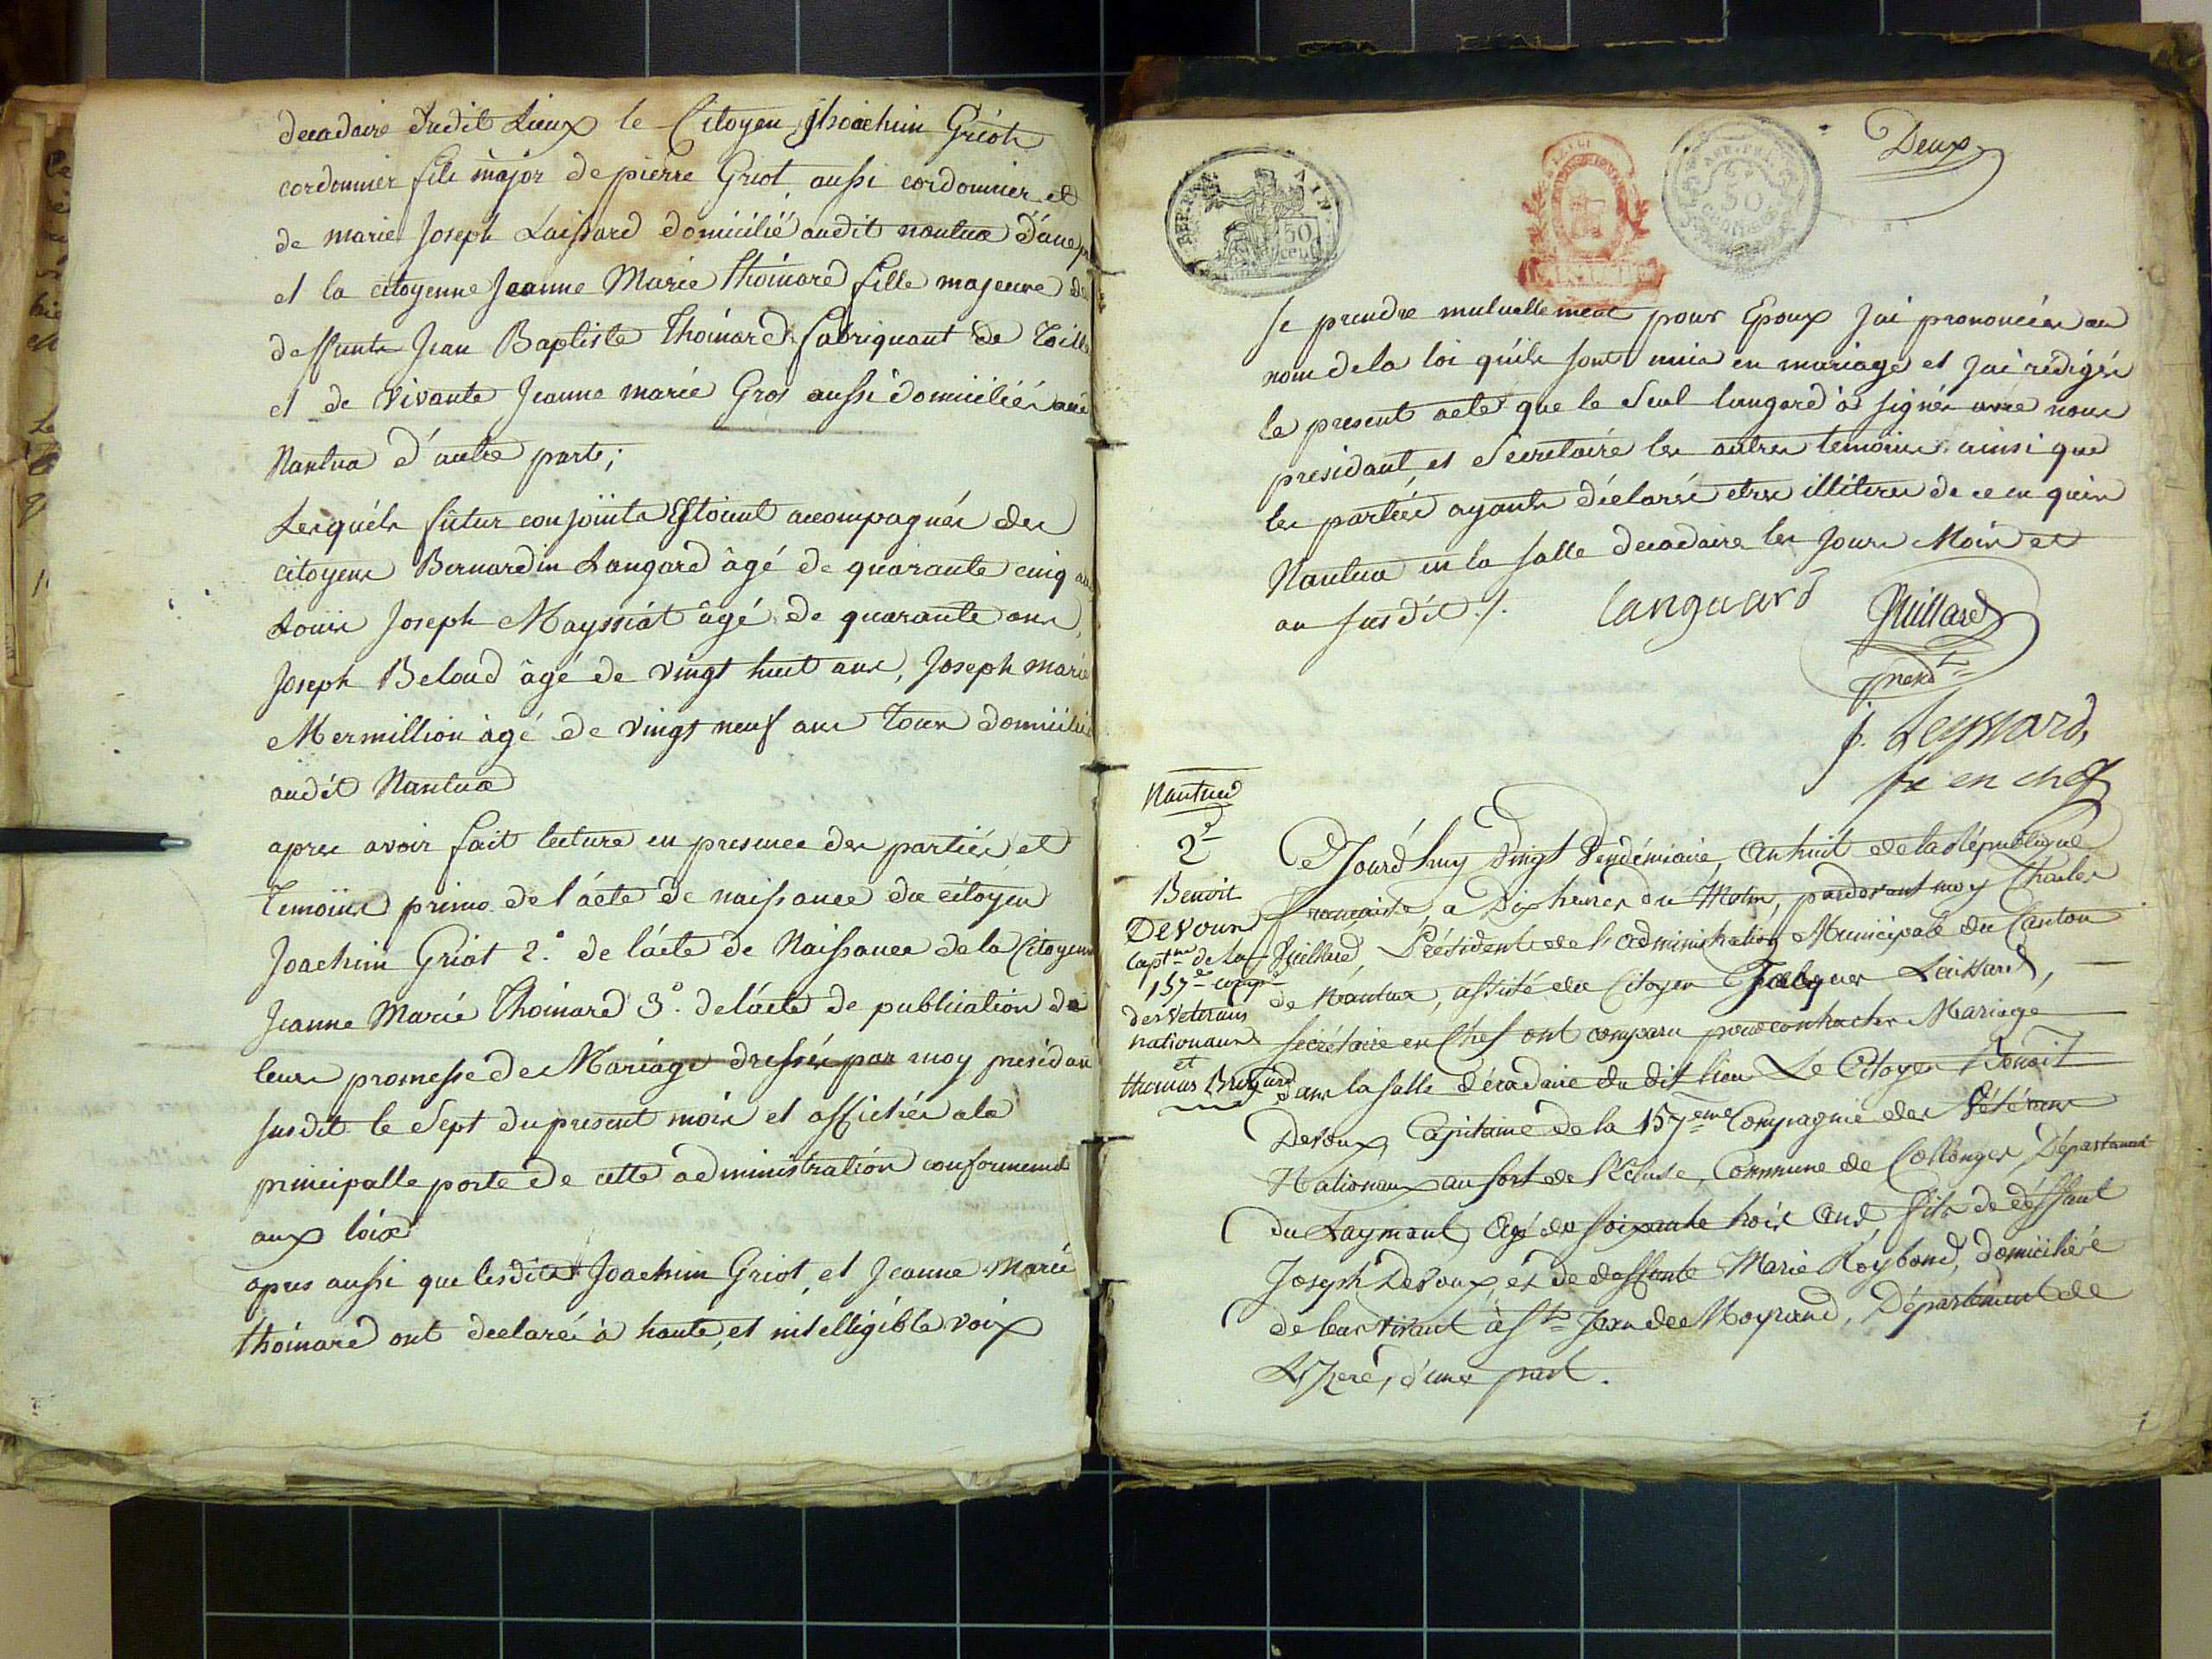 decadaire dudit Lieux le Citoyen Jhoachim Griot
cordonnier fils major de pierre Griot aussi cordonnier et
de marie Joseph Laissard domicilié audit nantua d'une p
et la citoyenne Jeanne Marie Thoinard fille majeure de
deffunts Jean Baptiste Thoinard fabriquant de Toille
et de vivante Jeanne marie Gros aussi domiciliés au
Nantua d'autre parte;
Lesquéls fûtur conjoints Estoient accompagnés des
citoyens Bernardin Langard âgé de quarante cinq ans
Louis Joseph Mayssiat âgé de quarante ans,
Joseph Beloud âgé de vingt huit ans, Joseph marie
Mermillion âgé de vingt neuf ans tous domicilié
audit Nantua
apres avoir fait lecture en presence des parties et
Temoins primo de l'acte de naissance du citoyen
Joachim Griot 2.° de l'acte de Naissance de la Citoyenne
Jeanne Marie Thoinard 3.° de l'acte de publication de
leurs promesse de Mariage dressée par moy présidant
susdit le Sept du present mois et affichés a la
principalle porte de cette administration conformement
aux loix
apres aussi que lesdits Joachim Griot, et Jeanne Marie
thoinard ont declaré à haute, et intelligible voix
Deux
50
se prendre mutuellement pour Epoux Jai prononcé au
nom de la loi quils sont unis en mariage et Jai rédigés
le present acte que le Seul langard a signés avec nous
président, et Secretaire les autres temoins ainsi que
les parties ayants déclarés etre illiteres de ce enquis
Nantua en la salle decadaire les Jours Mois et
an susdit ./.
Languard
Juillard
presd.t
j. Leyssard,
sre en chef
Nantua
2.e
Benoit
Devoux
Capt.ne de la
157.e comp.e
des veterans
nationaux
et
thomas
Ce Jourd'huy Vingt Vendémiaire, An huit de la République
française, a Dix heures du Matin, pardevant moy Charles
Juillard, Président de l'administration Municipale du Canton
de Nantua, assisté du Citoyen Jacques Laissard,
Secrétaire en Chef ont comparu pour contracter Mariage
dans la salle décadaire du dit lieu Le Citoyen Benoit
Devoux, Capitaine de la 157.eme Compagnie des Vétérans
Nationaux au fort de l'Ecluse, Commune de Collonges Departement
du Laymant, Agé de soixante trois ans fils de déffunt
Joseph Devoux, et de deffunte Marie Roybond, domiciliés
de leur vivant à St Jean de Moyrand, Département de
L'Izere, d'une part.